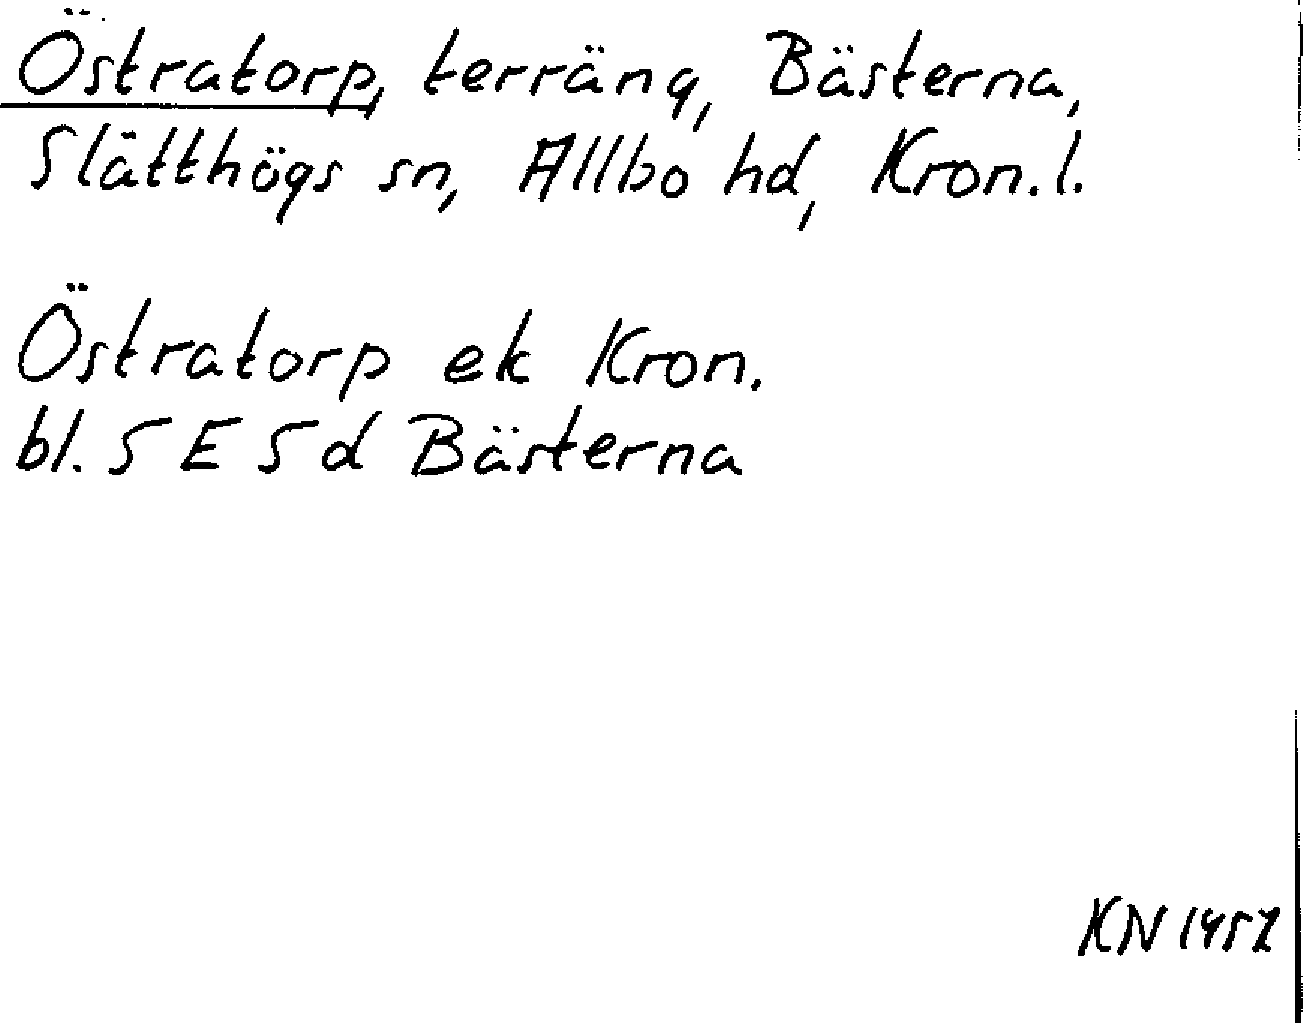 Östratorp, terräng, Bästerna,
Slätthögs sn, Allbo hd, Kron.l.
Östratorp ek Kron.
bl. 5 E 5 d Bästerna
KN